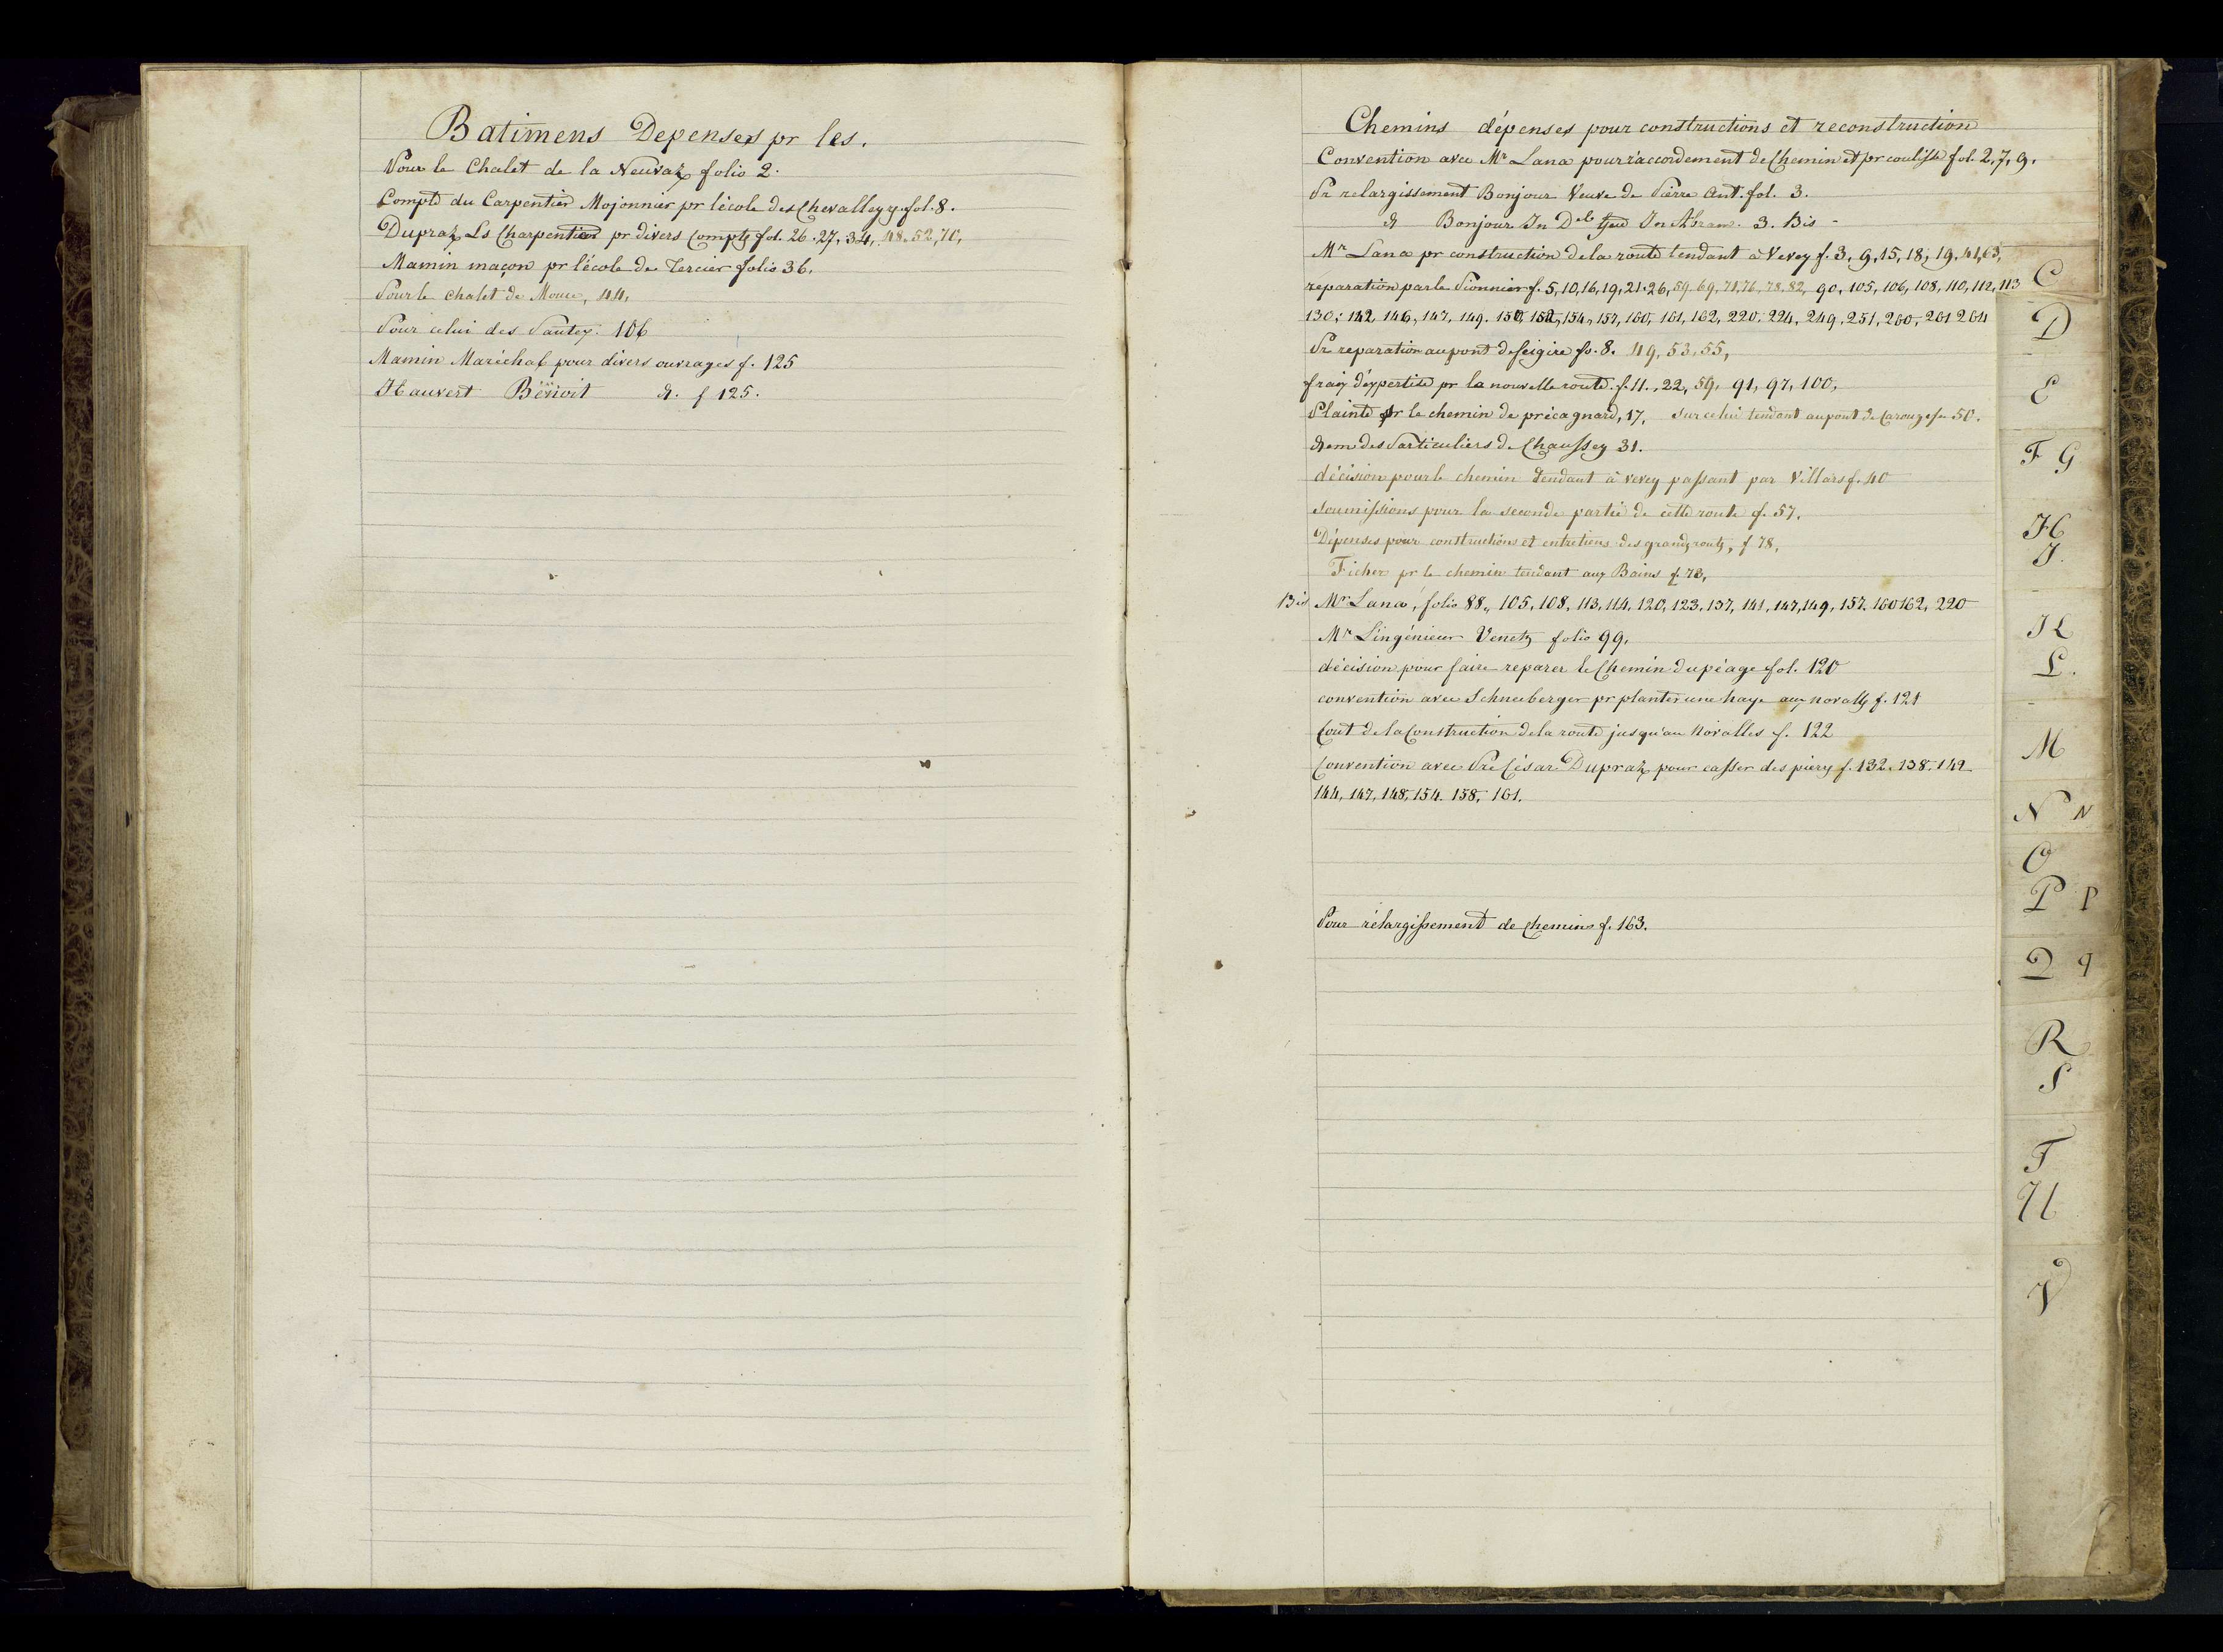 Batimens Depenses pr les.
Pour le Chalet de la Neuvaz folio 2.
Compte du Carpentier Mojonnier pr l'école des Chevalleyy fol. 8.
Dupraz Ls Charpentier pr divers Compts fol. 26. 27, 34, 48, 52, 70,
Mamin maçon pr l'école de Tercier folio 36.
Pour le chalet de Mouce, 44,
Pour celui des Pautex. 106
Mamin Maréchal pour divers ouvrages f. 125
Hauvert Benoit d. f 125.
Chemins dépenses pour constructions et reconstruction
Convention avec Mr Lana pour raccordement de Chemin et pr coulisse fol. 2, 7, 9.
Pr relargissement Bonjour Veuve de Pierre Ant. fol. 3.
d Bonjour Jn Dl feu Jn Abram. 3. Bis
Mr Lana pr construction de la route tendant à Vevey f. 3, 9, 15, 18, 19, 41, 63,
reparation par le Pionnier f. 5, 10, 16, 19, 21. 26, 59, 69, 71, 76, 78, 82, 90, 105, 106, 108, 110, 112, 113
130; 142 146, 147, 149. 150, 152, 154, 157, 160, 161, 162, 220. 224, 249, 251, 260, 261 264
Pr reparation au pont de feigire fo. 8. 49, 53, 55,
fraix d'expertise pr la nouvelle route. f. 11., 22, 59, 91, 97, 100,
Plainte pr le chemin de précagnard, 17, sur celui tendant au pont de Carouge fo 50.
dem des Particuliers de Chaussey 31.
décision pour le chemin tendant à vevey passant par Villars f. 40
soumissions pour la seconde partie de cette route f. 57,
Dépenses pour constructions et entretiens des grandz routs, f 78,
Ficher pr le chemin tendant aux Bains f. 78,
Bis Mr Lana, folio 88,, 105, 108, 113, 114, 120, 123, 137, 141, 147, 149, 157. 160 162, 220
Mr L'ingénieur Venetz folio 99.
décision pour faire reparer le Chemin du péage fol. 120
convention avec Schneeberger pr planter une haye aux novalls f. 121
Cout de la Construction de la route jusqu'au Novalles f. 122
Convention avec Pre César Dupraz pour casser des pierrs f. 132. 138. 142
144, 147, 148, 154. 158, 161.
Pour rélargissement de Chemins f. 163.
C
D
E
F G
H
J.
K
L.
M
N N
O
P P
Q q
R
S
T
U
V